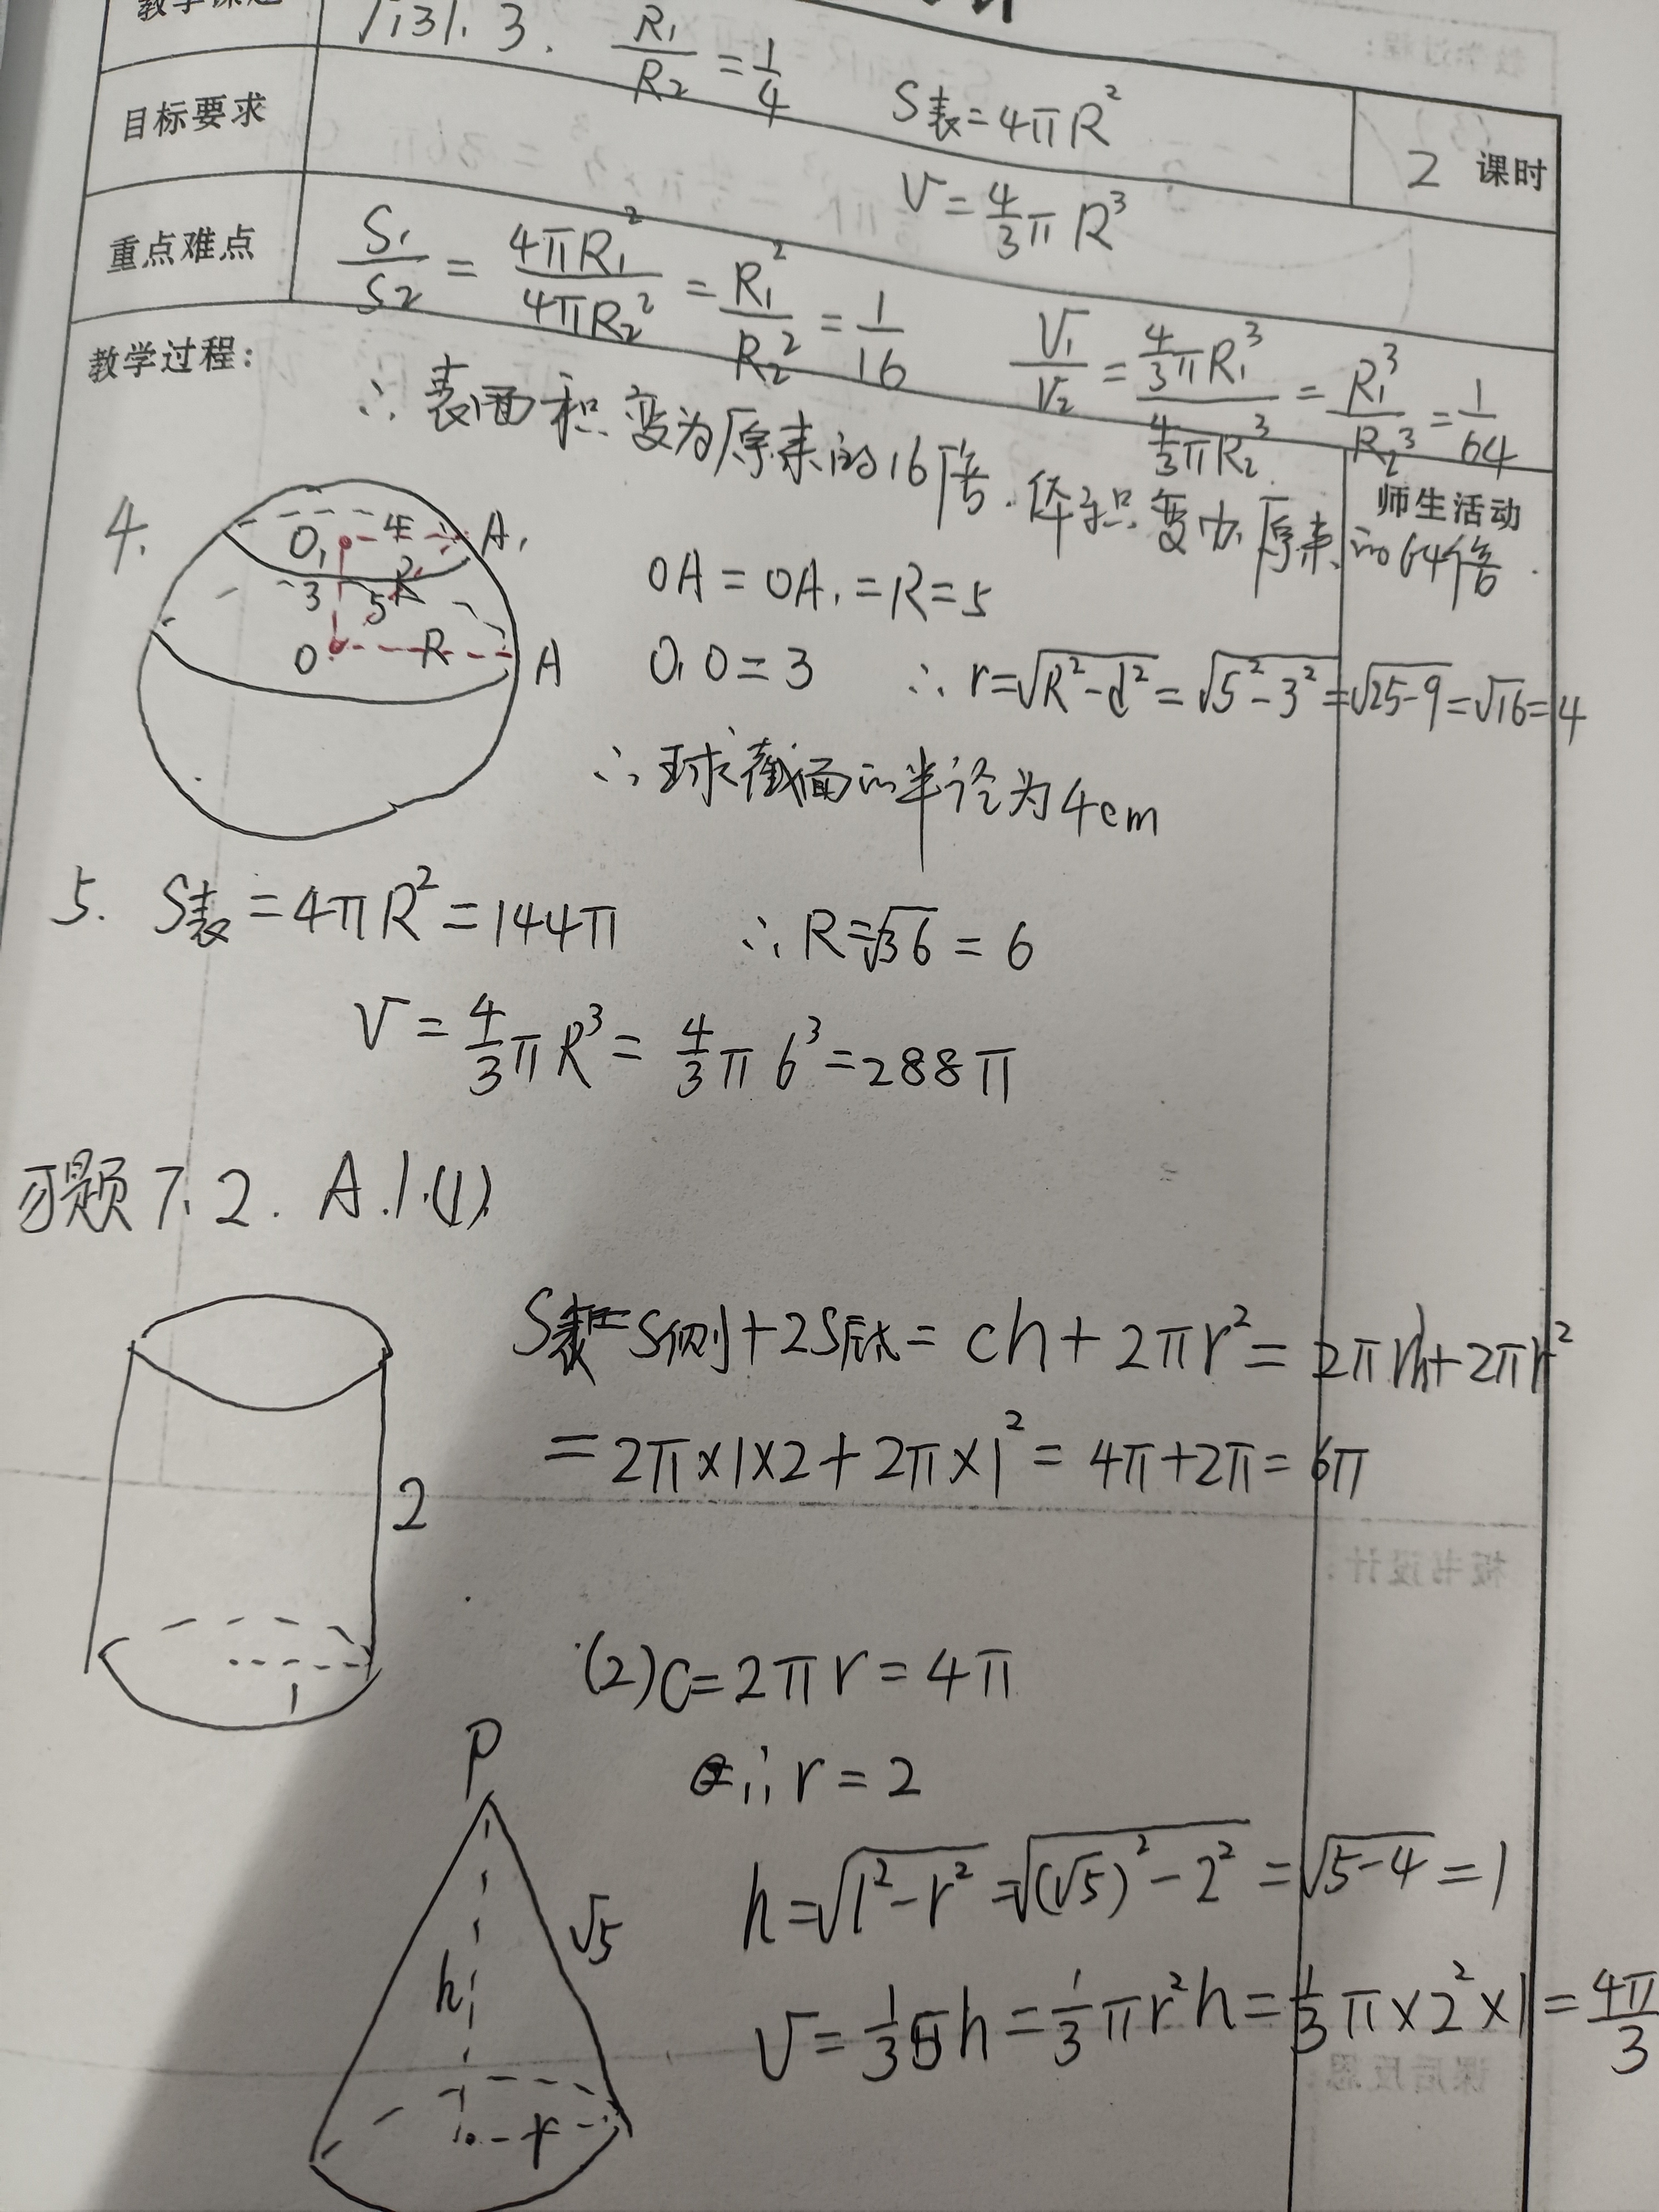 3. R₁/R₂ = 1/4
目标要求
S表=4πR²
2 课时
V=4/3πR³
重点难点
S₁/S₂ = 4πR₁²/4πR₂² = R₁²/R₂² = 1/16
V₁/V₂ = 4/3πR₁³/4/3πR₂³ = R₁³/R₂³ = 1/64
教学过程:
∴ 表面积变为原来的16倍.体积变为原来的64倍.
师生活动
4.
O₁ 4 A₁
3 5 R
O R A
OA=OA₁=R=5
O₁O=3 ∴ r=√(R²-d²)=√(5²-3²)=√(25-9)=√16=4
∴球截面的半径为4cm
5. S表=4πR²=144π ∴R=√36=6
V=4/3πR³=4/3π6³=288π
习题7.2. A.1.(1).
S表=S侧+2S底=ch+2πr²=2πrh+2πr²
=2π×1×2+2π×1²=4π+2π=6π
2
1
(2)C=2πr=4π
∴r=2
P
h=√(l²-r²)=√((√5)²-2²)=√(5-4)=1
√5
h
V=1/3Sh=1/3πr²h=1/3π×2²×1=4π/3
r